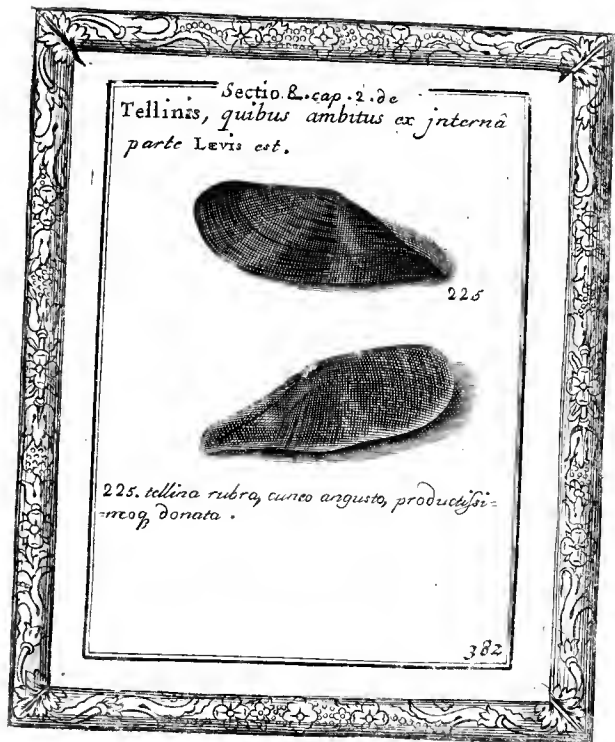 Sectio. 2. cap. 2. de
Tellinis, quibus ambitus ex jnternâ
parte Lævis est.
225
225. tellina rubra, cuneo angusto, productissi=
=meoq̨ donata.
382